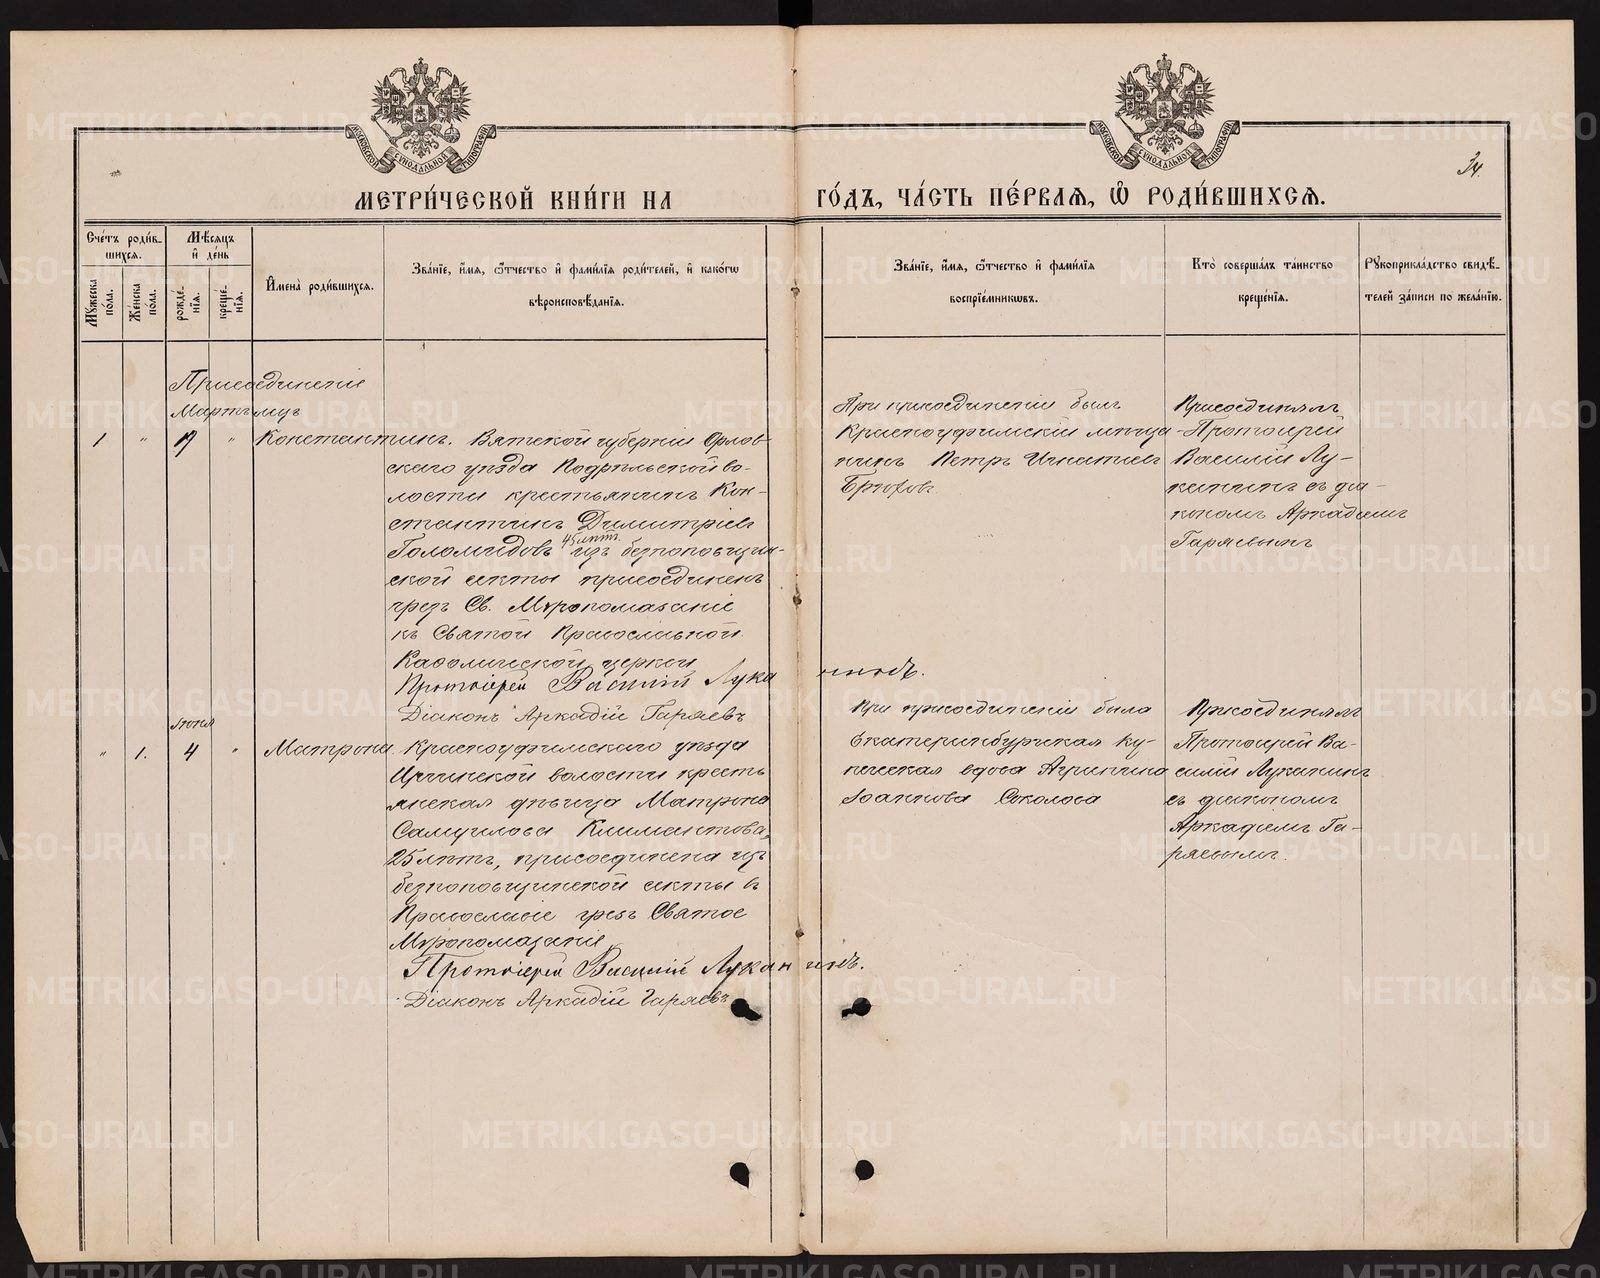 34.
МЕТРИ́ЧЕСКОЙ КНИ́ГИ НА ГО́ДЪ, ЧА́СТЬ ПЕ́РВАЯ, Ѿ РОДИ́ВШИХСЯ.
Сче́тъ роди́в-
шихся.
Мѣ́сяцъ
и де́нь
Му́жеска
по́ла.
Же́нска
по́ла.
рожде́-
нія.
креще́-
нія.
Имена̀ роди́вшихся.
Зва́ніе, и́мя, ѻ́тчество и фами́лія роди́телей, и како́гѡ
вѣроисповѣ́данія.
Зва́ніе, и́мя, ѻ́тчество и фами́лія
воспріе́мникѡвъ.
Кто̀ соверша́лъ та́инство
креще́нія.
Рукоприкла́дство свидѣ́-
телей за́писи по жела́нію.
Присоединеніе
Мартъ мцъ
1 " 19 " Константинъ.
Вятской губерніи Орлов-
скаго уѣзда Подрѣльской во-
лости крестьянинъ Кон-
стантинъ Димитріевъ
45 лѣтъ
Голомидовъ изъ безпоповщин-
ской секты присоединенъ
чрезъ Св. Мѵропомазаніе
къ Святой Православной
Каѳолической церкви
Протоіерей Василій Луканинъ.
Діаконъ Аркадій Гаряевъ
При присоединеніи былъ
Красноуфимскій мѣща-
нинъ Петръ Игнатіевъ
Брюховъ
Присоединялъ
Протоіерей
Василій Лу-
канинъ съ діа-
кономъ Аркадіемъ
Гаряевымъ
Іюнь
" 1. 4 " Матрона.
Красноуфимскаго уѣзда
Иргинской волости кресть
янская дѣвица Матрона
Самуилова Климантова,
25 лѣтъ, присоединена изъ
безпоповщинской секты въ
Православіе чрезъ Святое
Мѵропомазаніе
Протоіерей Василій Луканинъ.
Діаконъ Аркадій Гаряевъ
При присоединеніи была
Екатеринбургская ку-
печеская вдова Агрипина
Іоаннова Соколова
Присоединялъ
Протоіерей Ва-
силій Луканинъ
съ діакономъ
Аркадіемъ Га-
ряевымъ.
METRIKI.GASO-URAL.RU